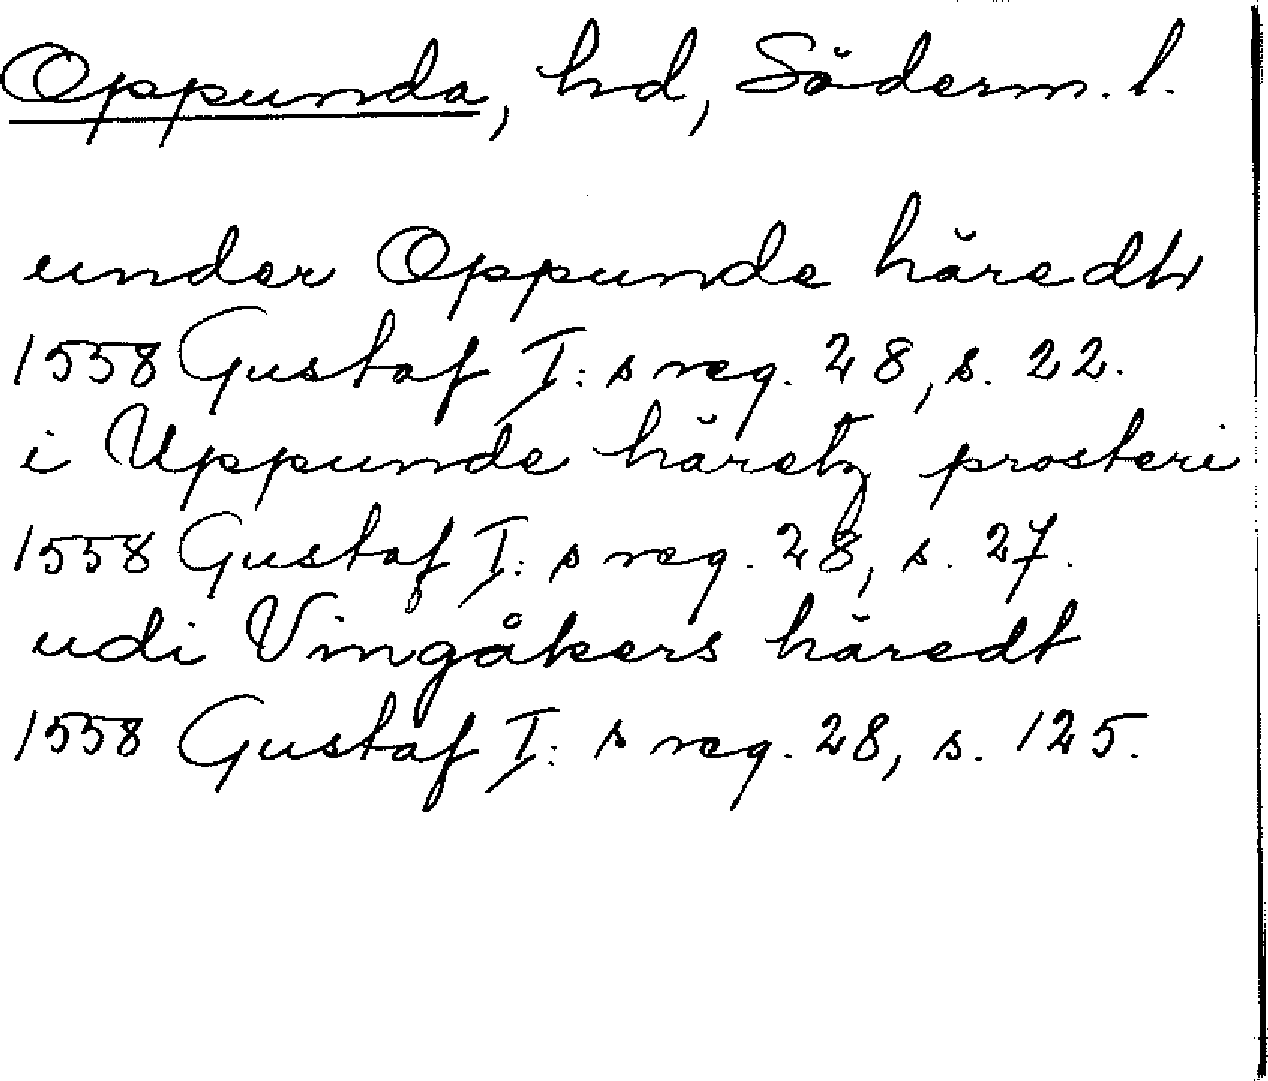 Oppunda, hd, Söderm. l.
under Oppunde häredt
1558 Gustaf I:s reg. 28, s. 22.
i Uppunde häretz prosteri
1558 Gustaf I:s reg. 28, s. 27.
udi Vingåkers häredt
1558 Gustaf I:s reg. 28, s. 125.